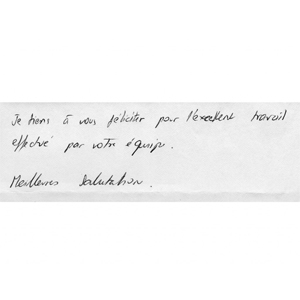 Je tiens à vous féliciter pour l'excellent travail
effectué par votre équipe.
Meilleures salutation.